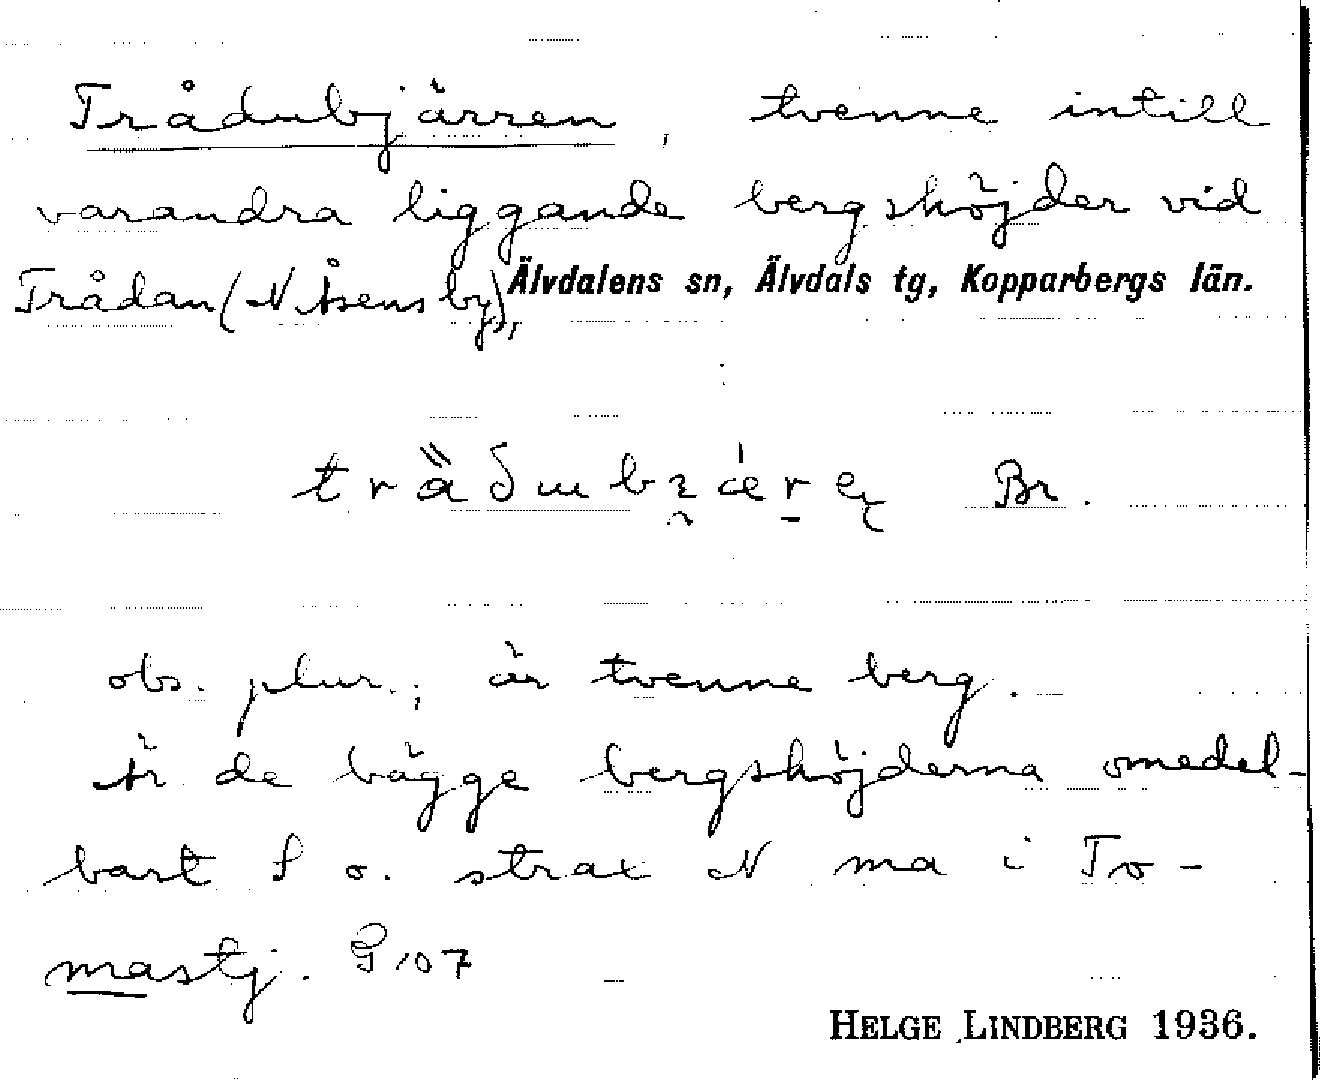 Trådubjärren, tvenne intill
varandra liggande bergshöjder vid
Trådan (N Åsens by), Älvdalens sn, Älvdals tg, Kopparbergs län.
Br.
obs. plur.; är tvenne berg.
Är de bägge bergshöjderna omedel-
bart S o. strax N ma i To-
mastj. G 107
HELGE LINDBERG 1936.